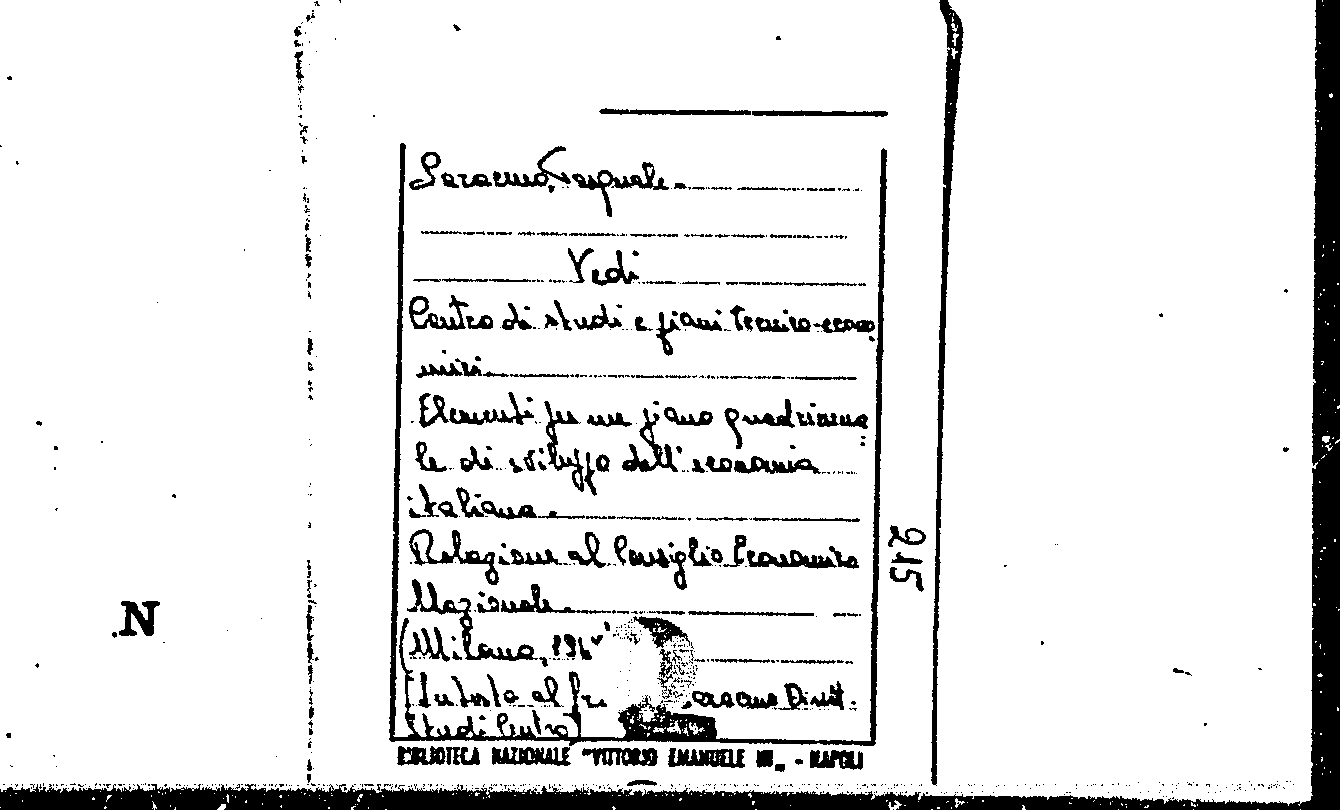 Saraceno, Pasquale.
Vedi
Centro di studi e piani tecnico-econo
mici.
Elementi per un piano quadrienna
le di sviluppo dell'economia
italiana.
Relazione al Consiglio Economico
Nazionale.
(Milano,
[In testa al Saraceno Diret.
Studi Centro]
BIBLIOTECA NAZIONALE "VITTORIO EMANUELE III" - NAPOLI
215
N